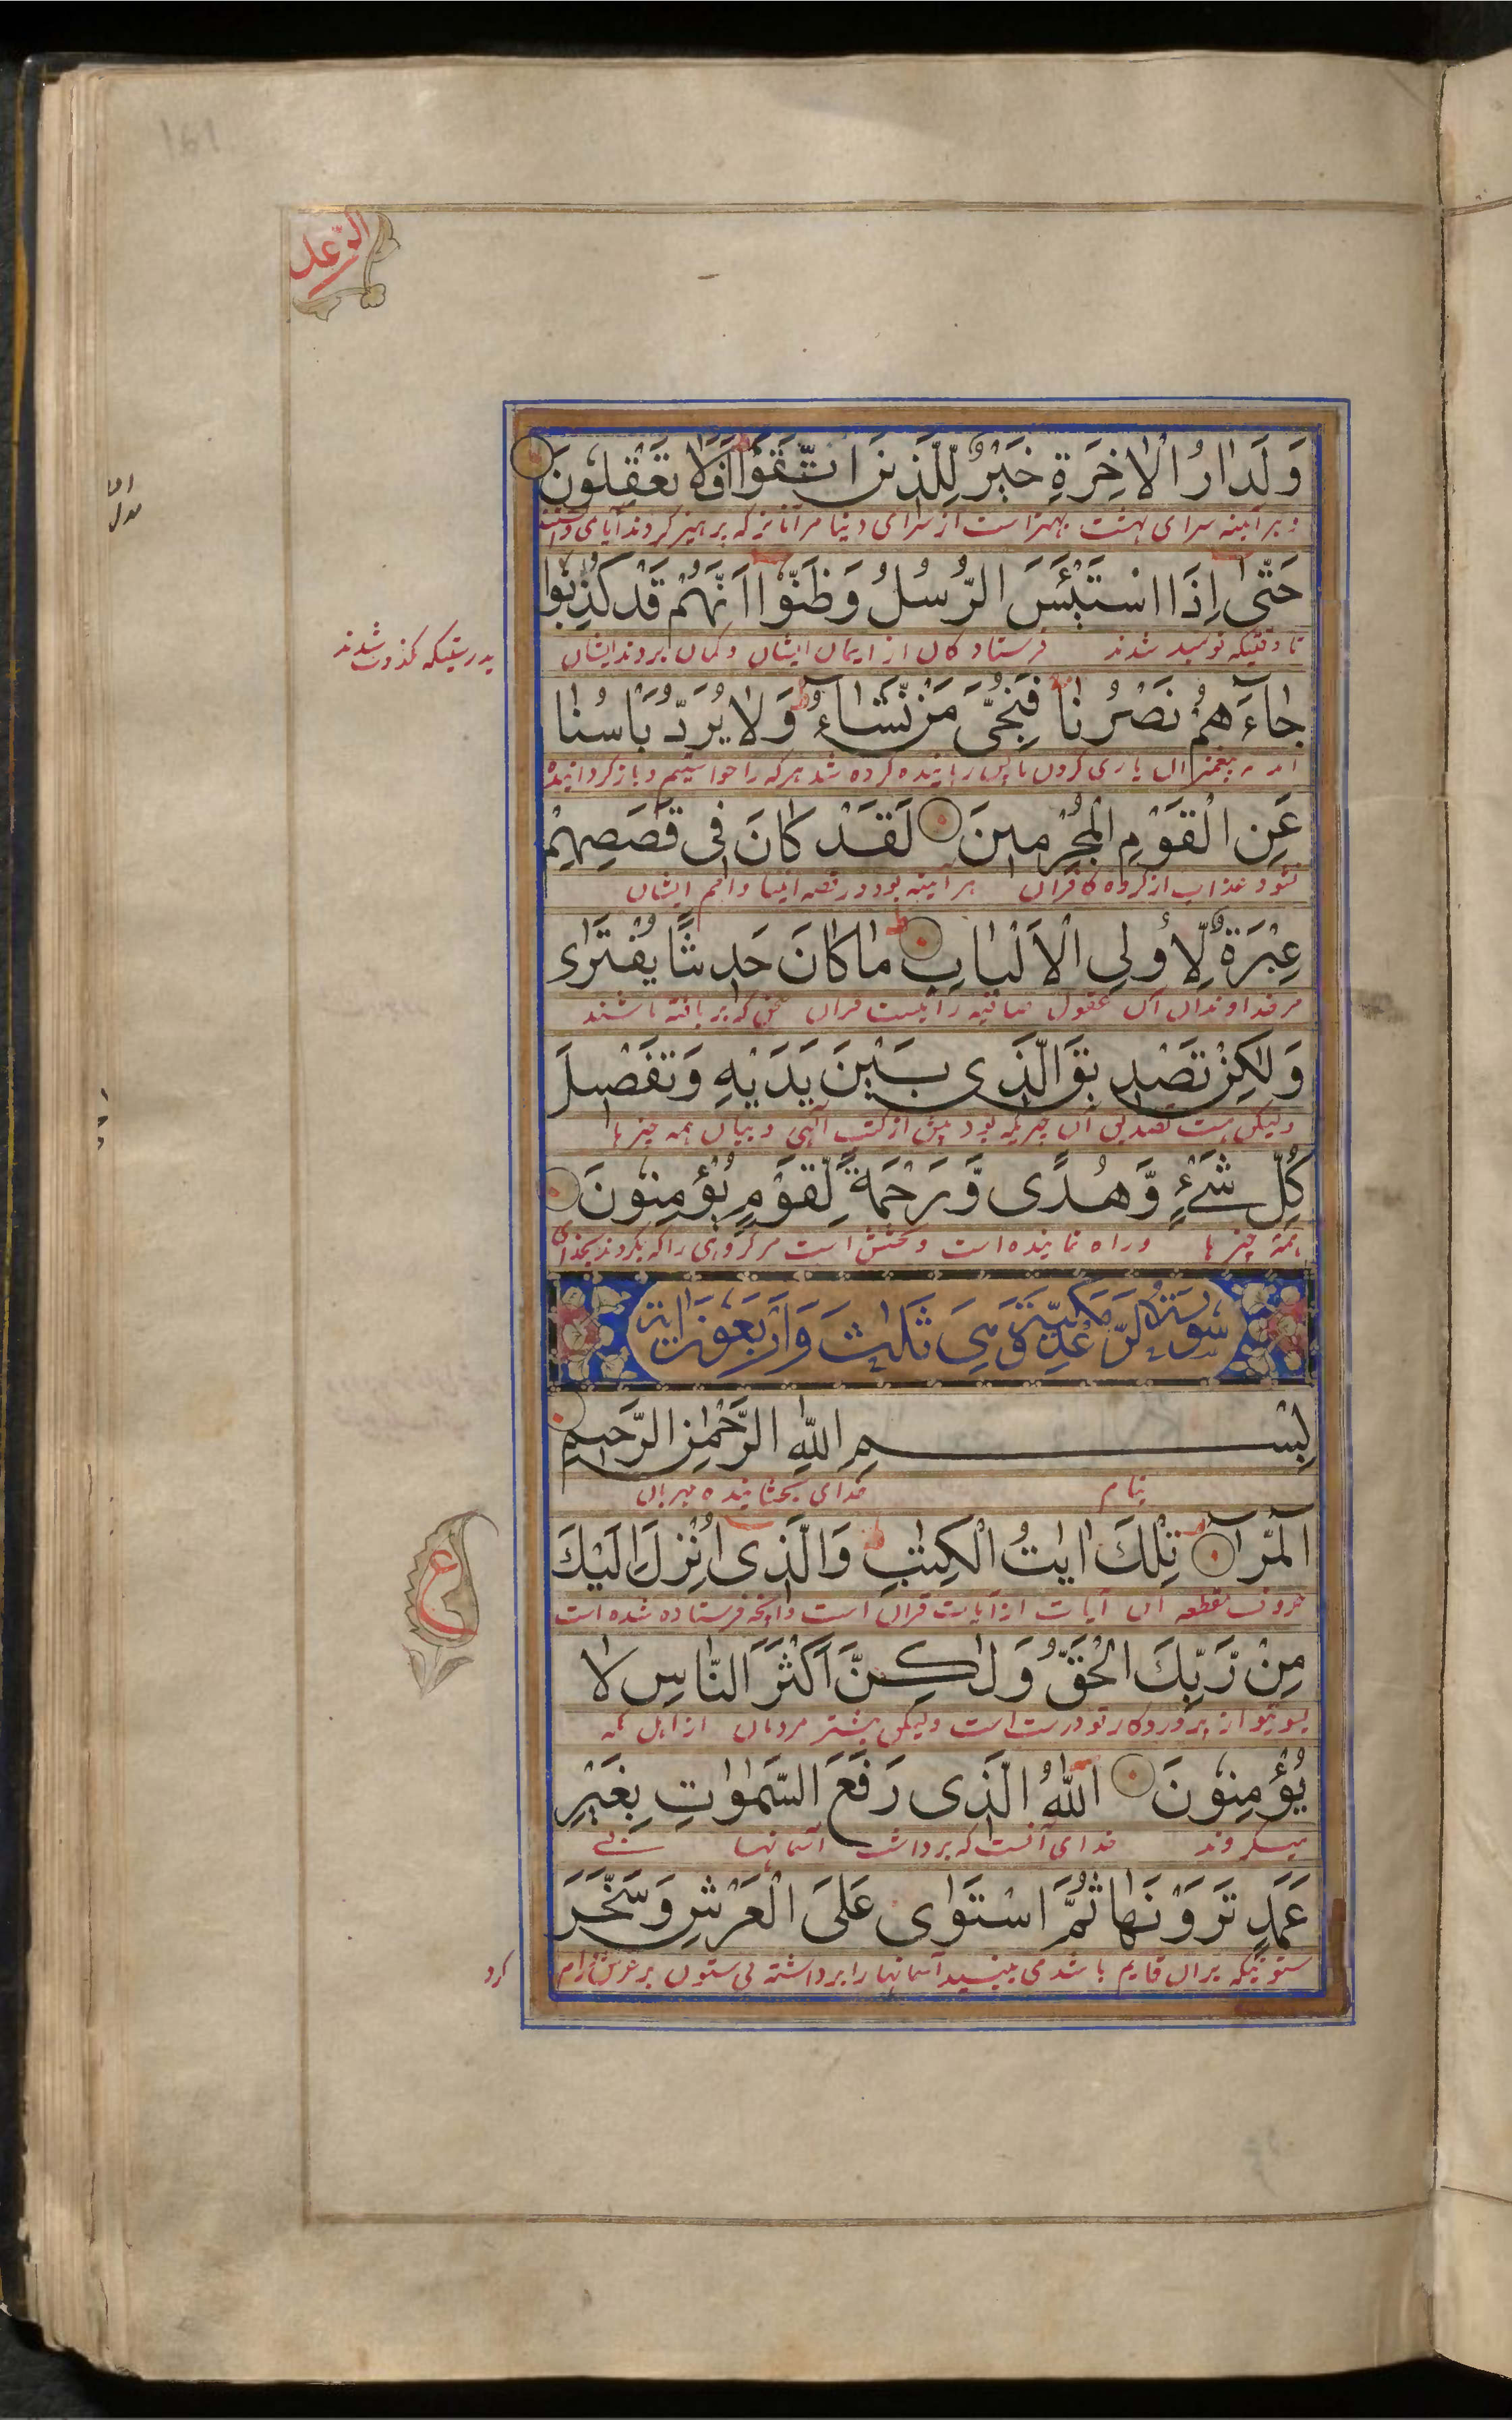 الرعد
وَلَدَارُ الْاٰخِرَةِ خَيْرٌ لِّلَّذِيْنَ اتَّقَوْا اَفَلَا تَعْقِلُوْنَ
حَتّٰى اِذَا اسْتَيْئَسَ الرُّسُلُ وَظَنُّوْا اَنَّهُمْ قَدْ كُذِبُوْا
تا وقتیکه نومید شدند فرستادگان از ایمان ایشان و گمان بردند ایشان
بدرستیکه شدند
جَآءَهُمْ نَصْرُنَا فَنُجِّيَ مَنْ نَّشَآءُ وَلَا يُرَدُّ بَاْسُنَا
عَنِ الْقَوْمِ الْمُجْرِمِيْنَ لَقَدْ كَانَ فِى قَصَصِهِمْ
شود عذاب از گروه کافران هر آینه بود در قصه انبیا و امم ایشان
عِبْرَةٌ لِّاُولِى الْاَلْبَابِ مَا كَانَ حَدِيثًا يُفْتَرٰى
مر خداوندان عقول صافیه را نیست قران که بر بافته باشند
وَلٰكِنْ تَصْدِيقَ الَّذِى بَيْنَ يَدَيْهِ وَتَفْصِيلَ
ولیکن هست تصدیق آن چیزیکه بود پیش از کتب الهی و بیان همه چیز ها
كُلِّ شَىْءٍ وَّهُدًى وَّرَحْمَةً لِّقَوْمٍ يُؤْمِنُوْنَ
همه چیز ها و راه نماینده است و بخشش است مر گروهی را که بگروند بخدای
سُوْرَةُ الرَّعْدِ مَكِّيَّةٌ وَّهِىَ ثَلٰثٌ وَّاَرْبَعُوْنَ اٰيَةً
بِسْمِ اللّٰهِ الرَّحْمٰنِ الرَّحِيْمِ
بنام خدای بخشاینده مهربان
الٓمّٓرٰ تِلْكَ اٰيٰتُ الْكِتٰبِ وَالَّذِى اُنْزِلَ اِلَيْكَ
حروف مقطعه این آیات از آیات قران است و آنچه فرستاده شده است
ع
مِنْ رَّبِّكَ الْحَقُّ وَلٰكِنَّ اَكْثَرَ النَّاسِ لَا
بسوی تو از پروردگار تو درست است ولیکن بیشتر مردمان از اهل مکه
يُؤْمِنُوْنَ اَللّٰهُ الَّذِى رَفَعَ السَّمٰوٰتِ بِغَيْرِ
خدای آنست که برداشت آسمانها بی
عَمَدٍ تَرَوْنَهَا ثُمَّ اسْتَوٰى عَلَى الْعَرْشِ وَسَخَّرَ
ستونیکه بران قایم باشد می بینید آسمانها را برداشته بی ستون بر عرش
کرد